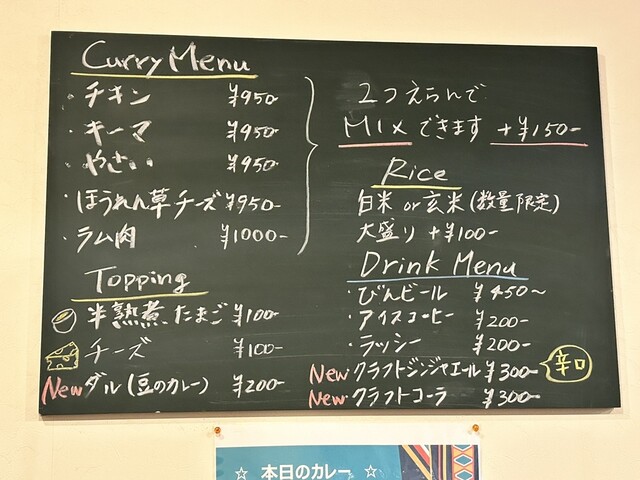 Curry Menu
・チキン ¥950-
・キーマ ¥950-
・やさい ¥950-
・ほうれん草チーズ ¥950-
・ラム肉 ¥1000-
Topping
半熟煮たまご ¥100-
チーズ ¥100-
New ダル(豆のカレー) ¥200-
2つえらんで
MIXできます +¥150-
Rice
白米 or 玄米(数量限定)
大盛り +¥100-
Drink Menu
・びんビール ¥450〜
・アイスコーヒー ¥200-
・ラッシー ¥200-
New クラフトジンジャエール ¥300- 辛口
New・クラフトコーラ ¥300-
☆ 本日のカレー ☆